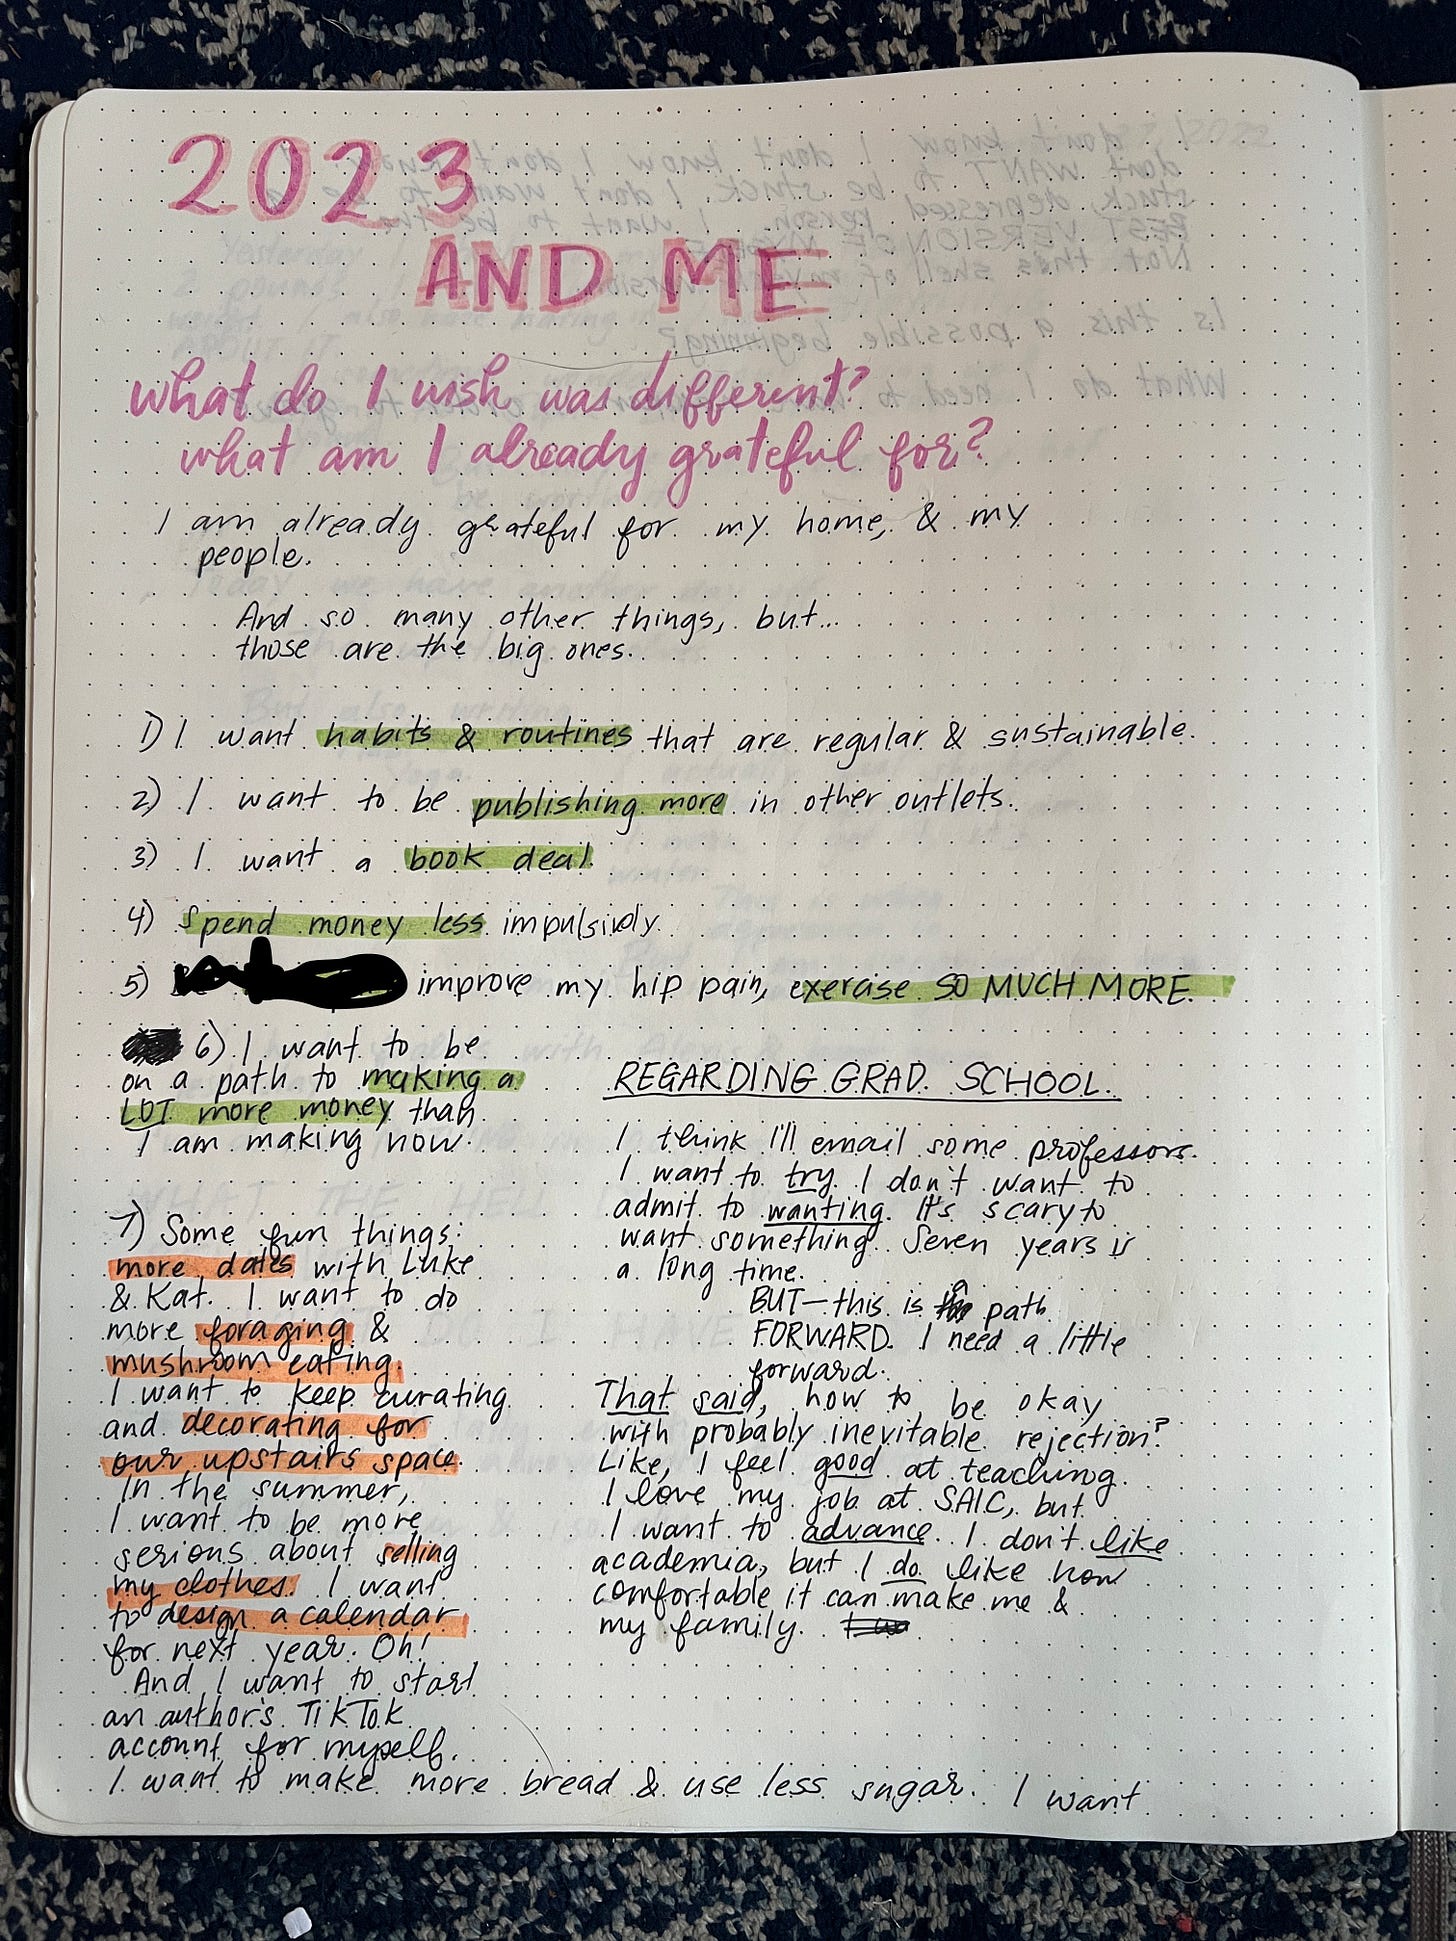 2023
AND ME
what do I wish was different?
what am I already grateful for?
I am already grateful for my home, & my
people.
And so many other things, but...
those are the big ones.
1) I want habits & routines that are regular & sustainable.
2) I want to be publishing more in other outlets.
3) I want a book deal.
4) Spend money less impulsively.
5) improve my hip pain, exercise SO MUCH MORE.
6) I want to be
on a path to making a
LOT more money than
I am making now.
7) Some fun things:
more dates with Luke
& Kat. I want to do
more foraging &
mushroom eating.
I want to keep curating
and decorating for
our upstairs space.
In the summer,
I want to be more
serious about selling
my clothes. I want
to design a calendar
for next year. Oh!
And I want to start
an author's TikTok
account for myself.
I want to make more bread & use less sugar. I want
REGARDING GRAD SCHOOL.
I think I'll email some professors.
I want to try. I don't want to
admit to wanting. It's scary to
want something. Seven years is
a long time.
BUT—this is a path
FORWARD. I need a little
forward.
That said, how to be okay
with probably inevitable rejection?
Like, I feel good at teaching.
I love my job at SAIC, but
I want to advance. I don't like
academia, but I do like how
comfortable it can make me &
my family.